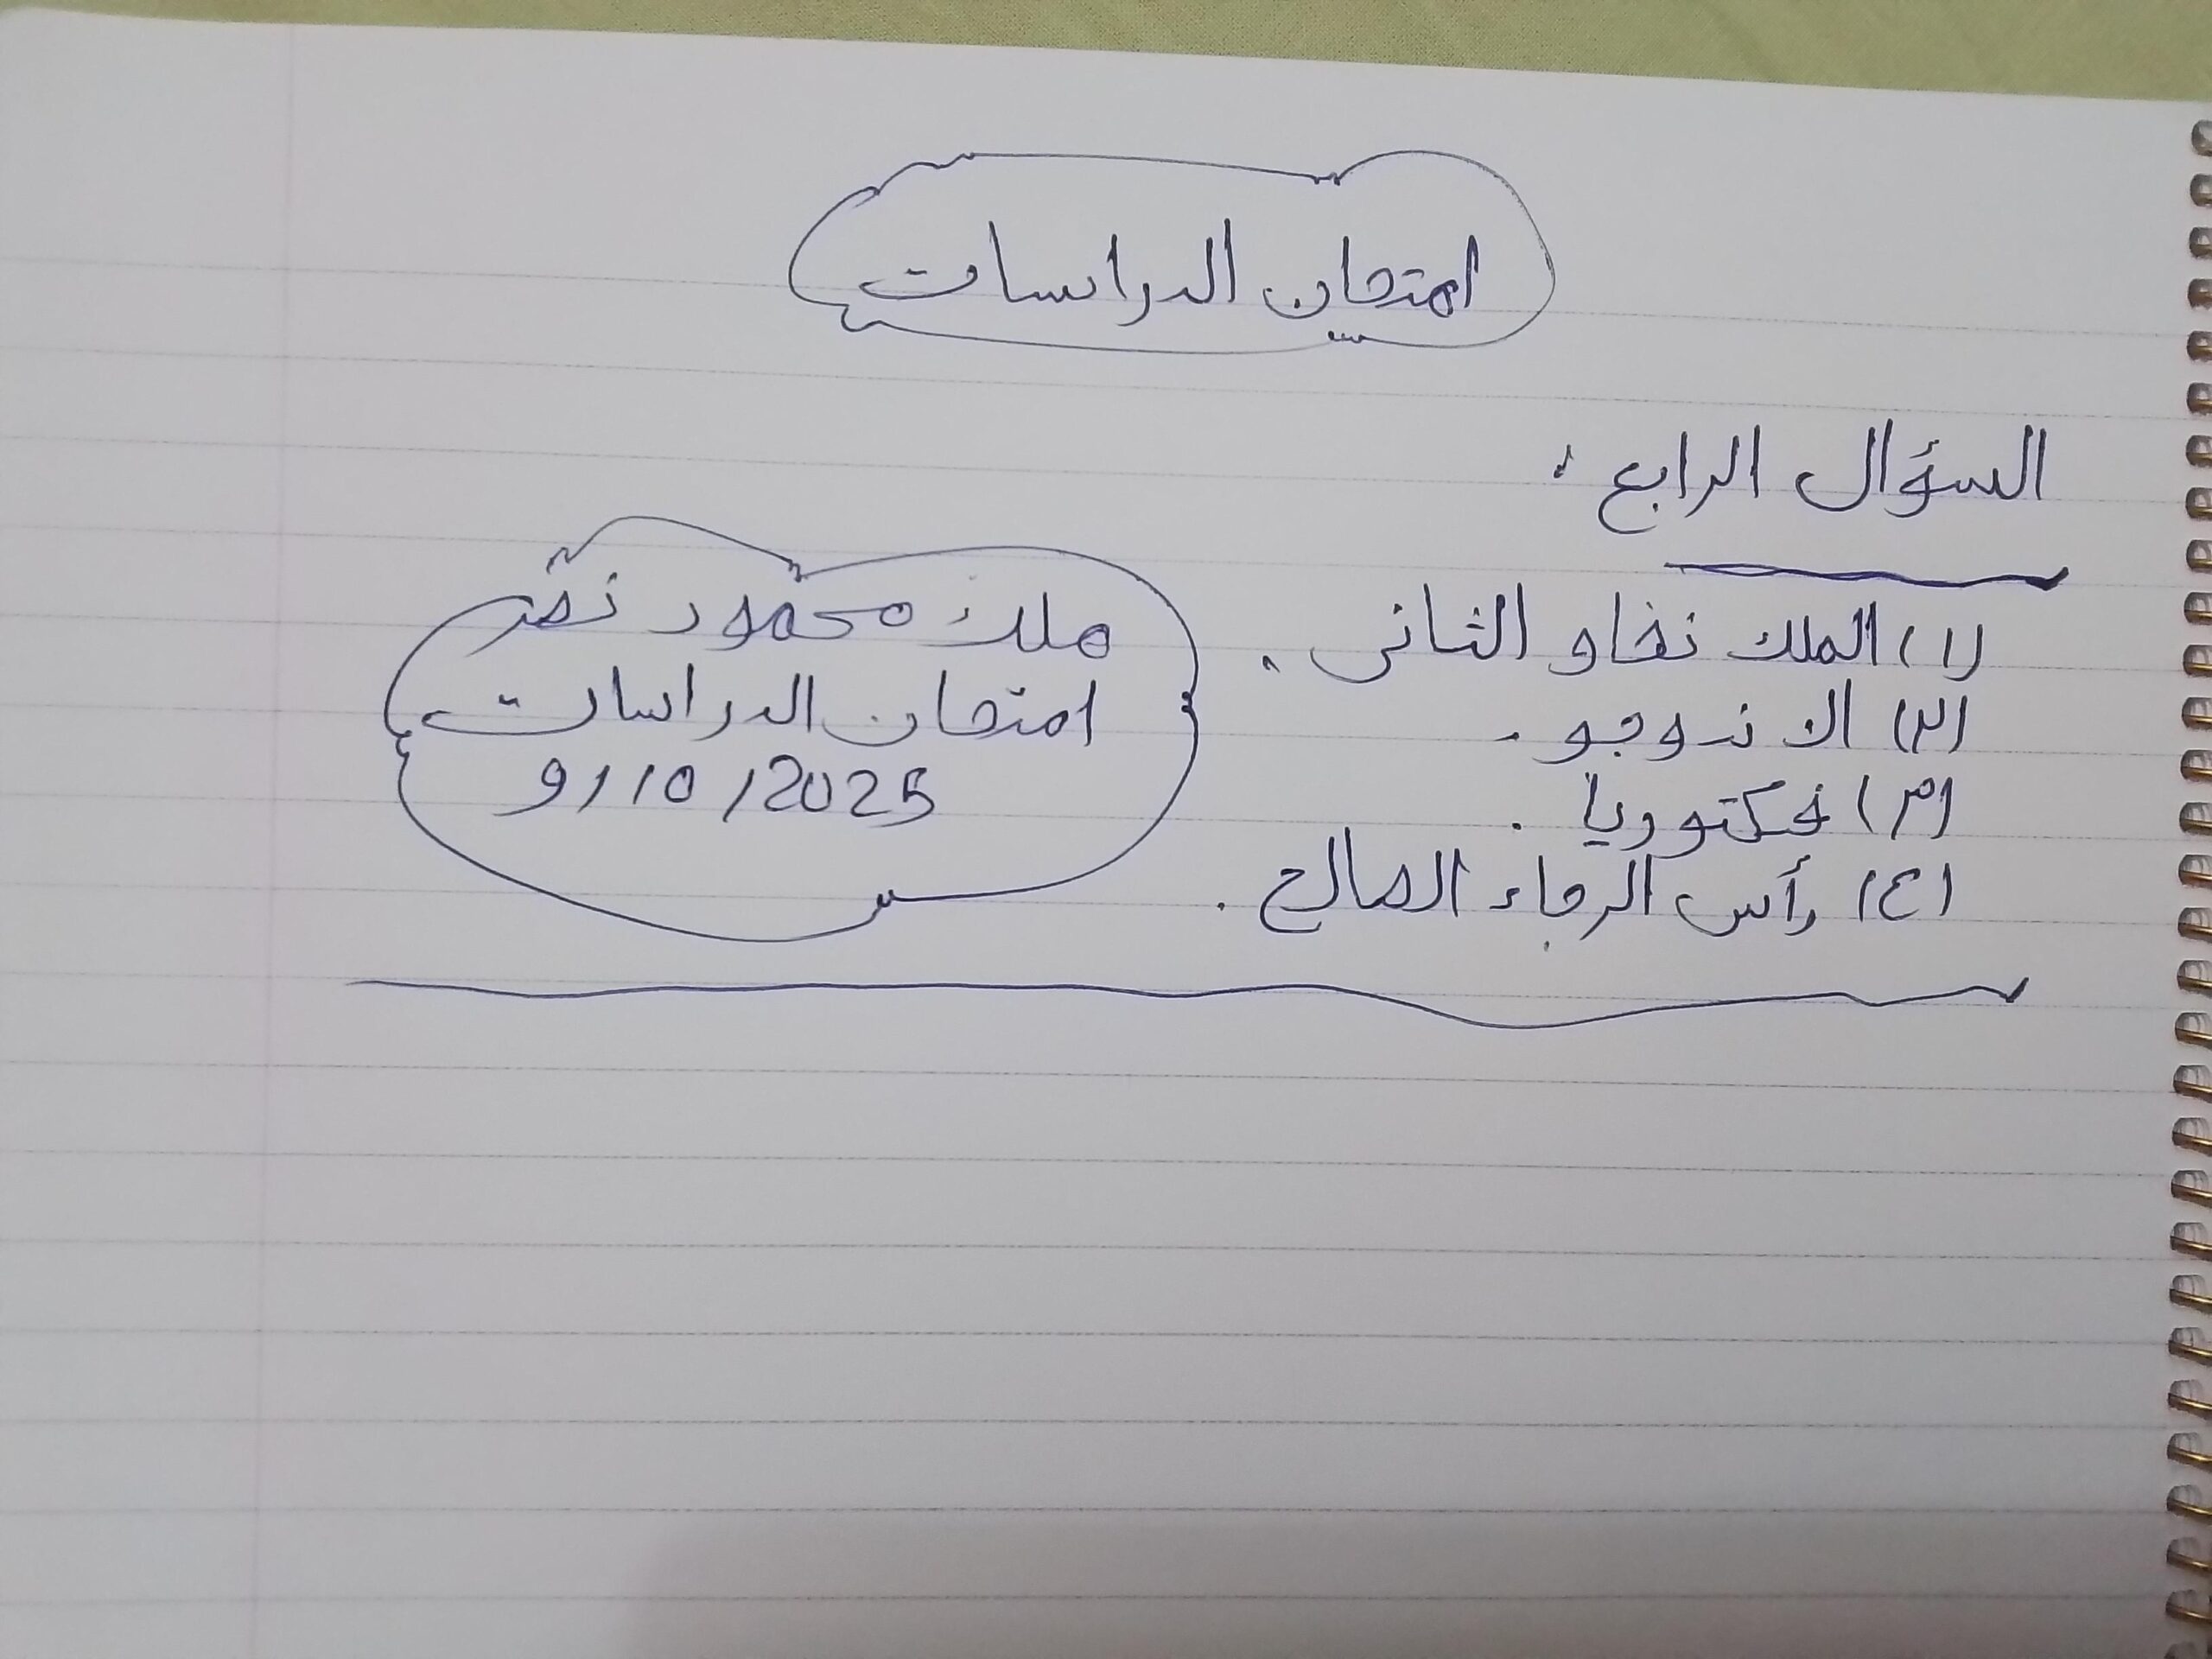 امتحان الدراسات
السؤال الرابع :
(١) الملك نخاو الثانى .
(٢) الاندوجو .
(٣) فكتوريا .
(٤) رأس الرجاء الصالح .
ملك محمود نصر
امتحان الدراسات
9/10/2025